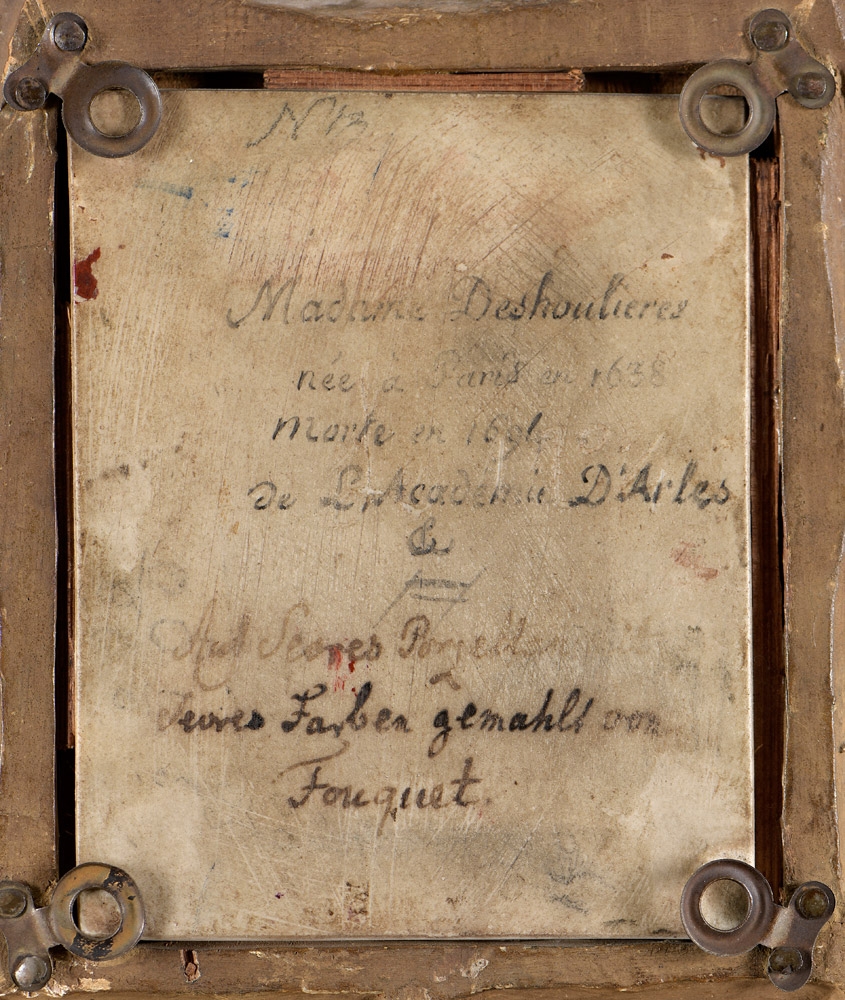 Madame Deshoulieres
née à Paris en 1638
Morte en 1694
de L'Academie D'Arles
&
Auf Sevres Porzellan mit
Sevres Farben gemahlt von
Fouquet.